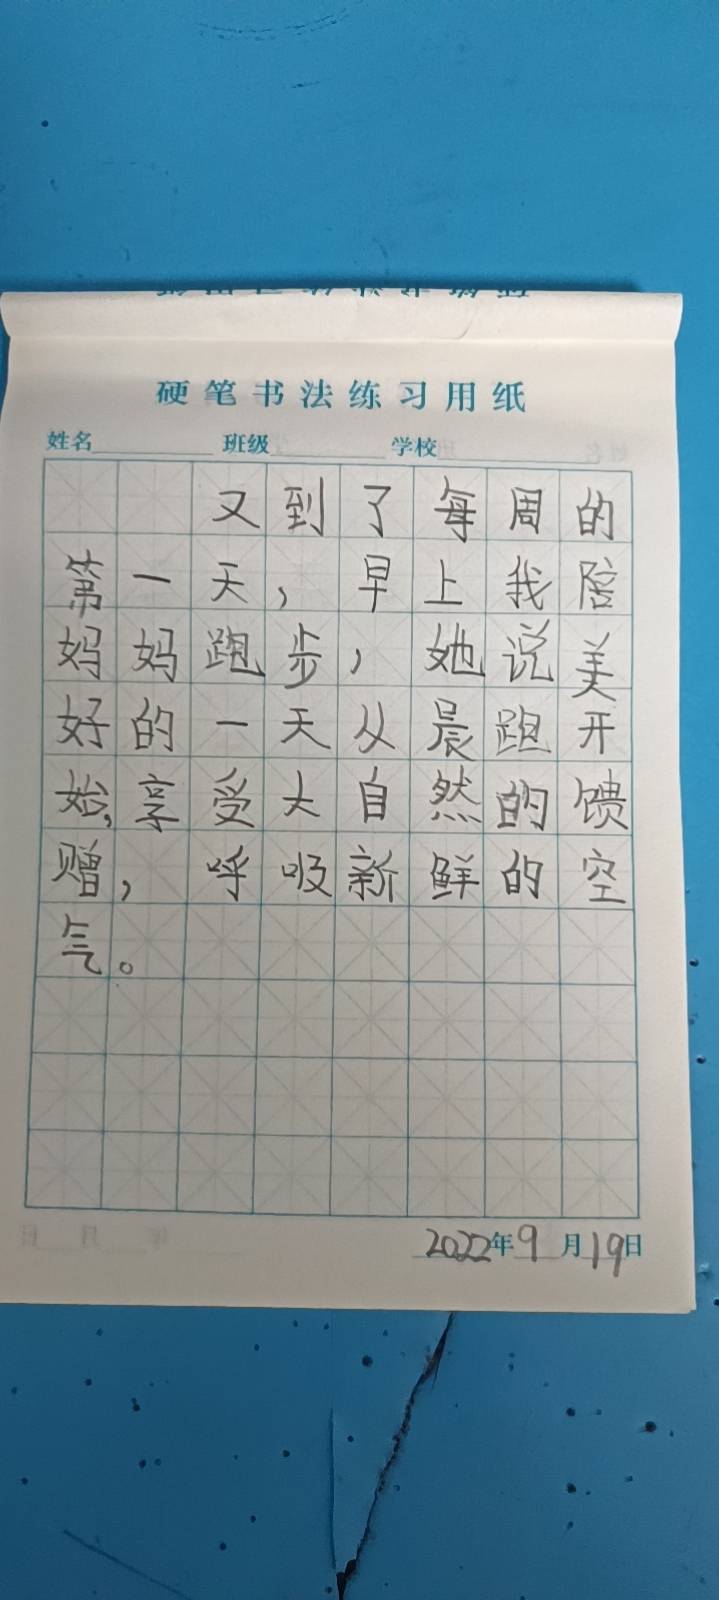 硬笔书法练习用纸
姓名 班级 学校
又到了每周的
第一天，早上我陪
妈妈跑步，她说美
好的一天从晨跑开
始，享受大自然的馈
赠，呼吸新鲜的空
气。
2022年9月19日